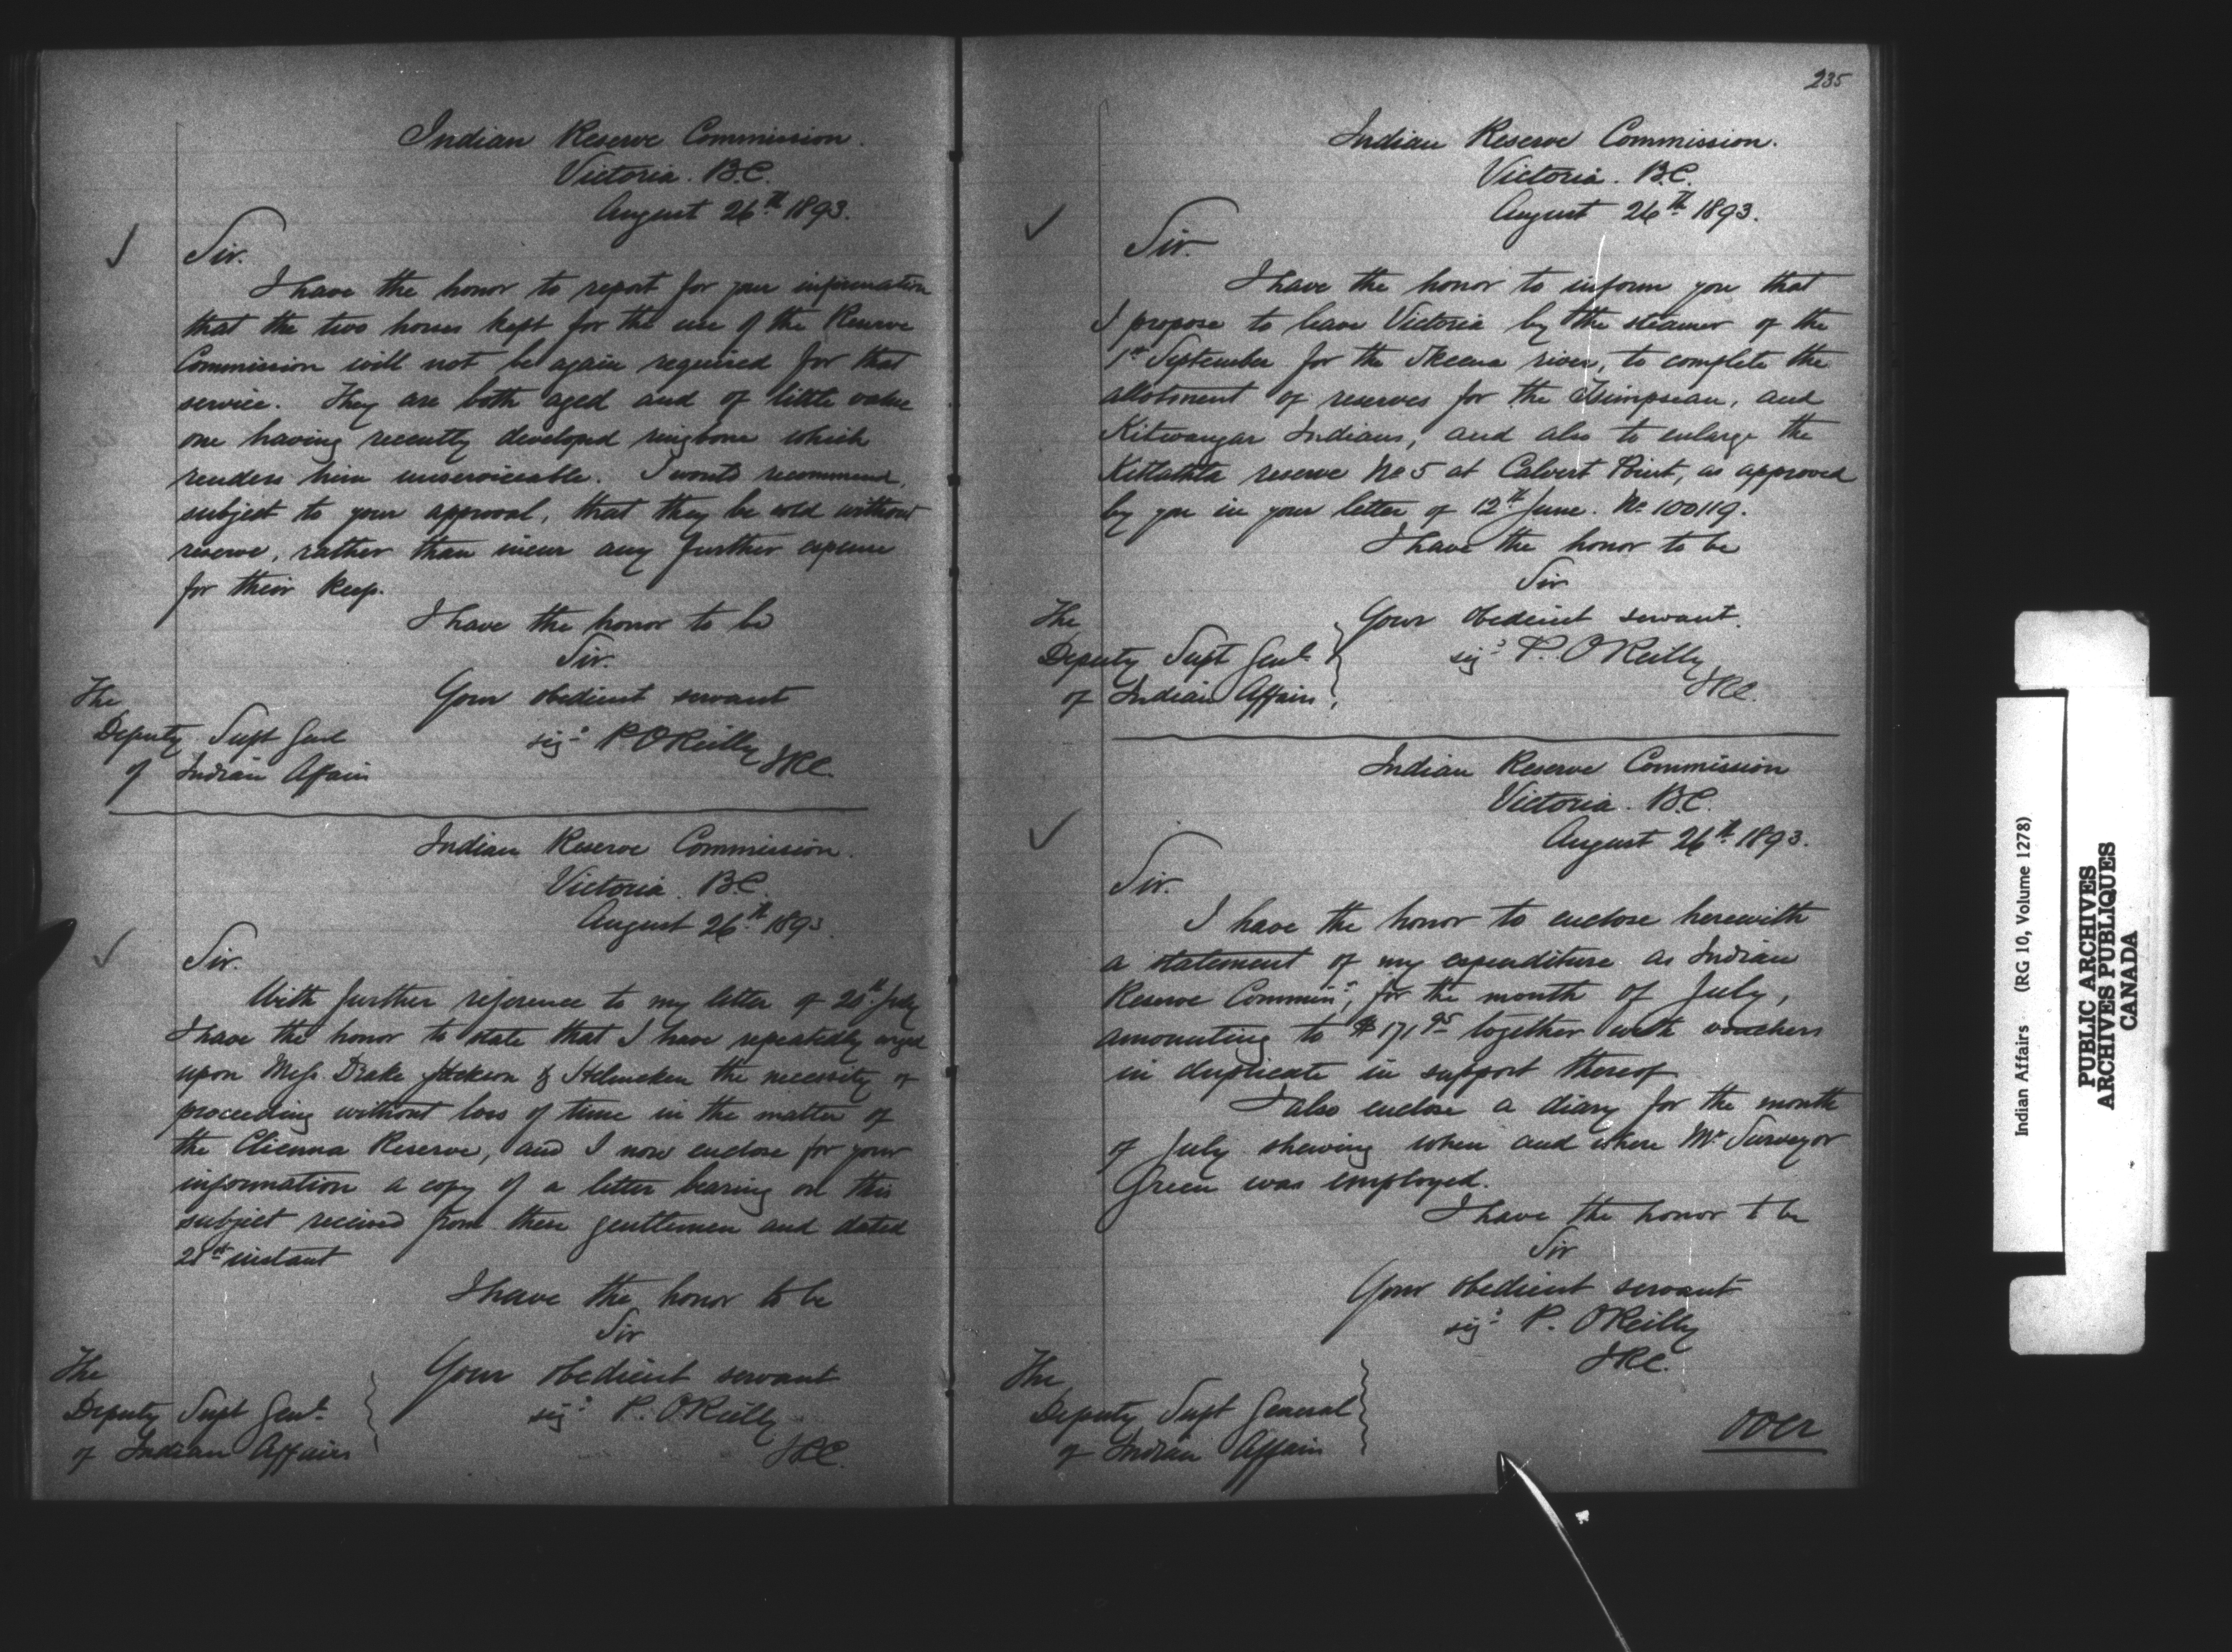 Indian Reserve Commission.
Victoria. B.C.
August 26th 1893.
Sir.
I have the honor to report for your information
that the two horses kept for the use of the Reserve
Commission will not be again required for that
service. They are both aged and of little value
one having recently developed ringbone which
renders him unserviceable. I would recommend,
subject to your approval, that they be sold without
reserve, rather than incur any further expense
for their keep.
I have the honor to be
Sir.
Your obedient servant
sigd P. O'Reilly
I.R.C.
The
Deputy Supt Genl
of Indian Affairs
Indian Reserve Commission.
Victoria. B.C.
August 26th 1893.
Sir.
With further reference to my letter of 20th July
I have the honor to state that I have repeatedly urged
upon Messrs. Drake Jackson & Helmcken the necessity of
proceeding without loss of time in the matter of
the Clienna Reserve, and I now enclose for your
information a copy of a letter bearing on this
subject received from these gentlemen and dated
21st instant
I have the honor to be
Sir
Your obedient servant
sigd P. O'Reilly
I.R.C.
The
Deputy Supt Genl.
of Indian Affairs
235
Indian Reserve Commission.
Victoria. B.C.
August 26th 1893.
Sir.
I have the honor to inform you that
I propose to leave Victoria by the steamer of the
1st September for the Skeena river, to complete the
allotment of reserves for the Tsimpsean, and
Kitwangar Indians, and also to enlarge the
Kitlathla reserve No 5 at Calvert Point, as approved
by you in your letter of 12th June. No 100119.
I have the honor to be
Sir
Your obedient servant.
sigd P. O'Reilly
I.R.C.
The
Deputy Supt Genl.
of Indian Affairs,
Indian Reserve Commission
Victoria. B.C.
August 26th 1893.
Sir.
I have the honor to enclose herewith
a statement of my expenditure as Indian
Reserve Commnr, for the month of July,
amounting to $171 95 together with vouchers
in duplicate in support thereof
I also enclose a diary for the month
of July shewing when and where Mr Surveyor
Green was employed.
I have the honor t be
Sir
Your obedient servant
sigd P. O'Reilly
I.R.C.
The
Deputy Supt General
of Indian Affairs
over
Indian Affairs (RG 10, Volume 1278)
PUBLIC ARCHIVES
ARCHIVES PUBLIQUES
CANADA